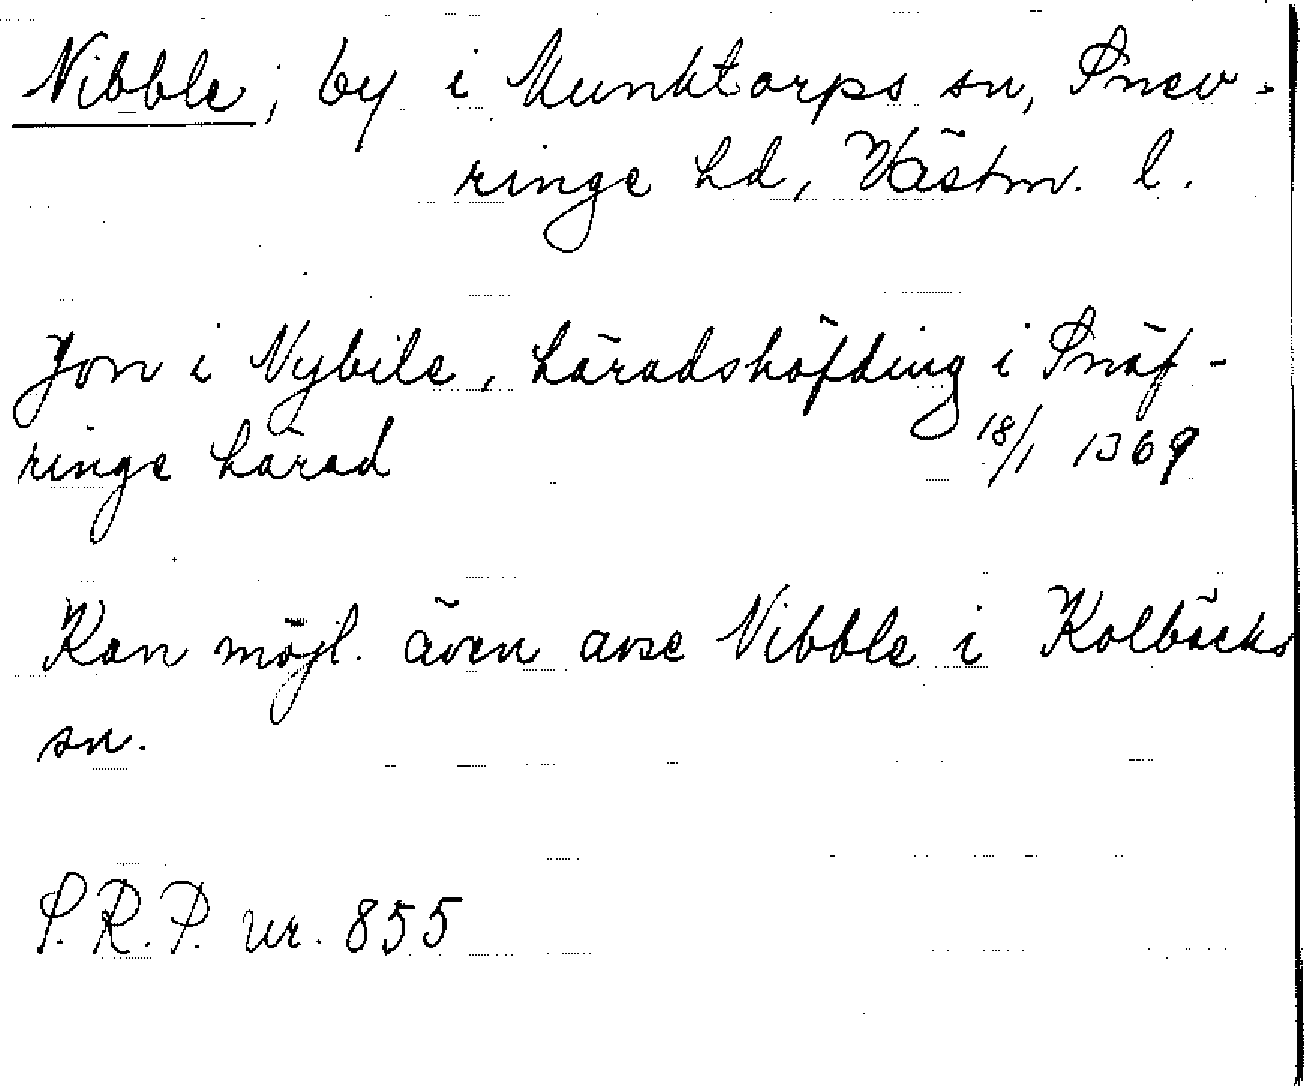 Nibble, by i Munktorps sn, Snev-
ringe hd, Västm. l.
Jon i Nybile, häradshöfding i Snäf-
ringe härad 18/1 1369
Kan möjl. även avse Nibble i Kolbäcks
sn.
S.R.P. nr. 855